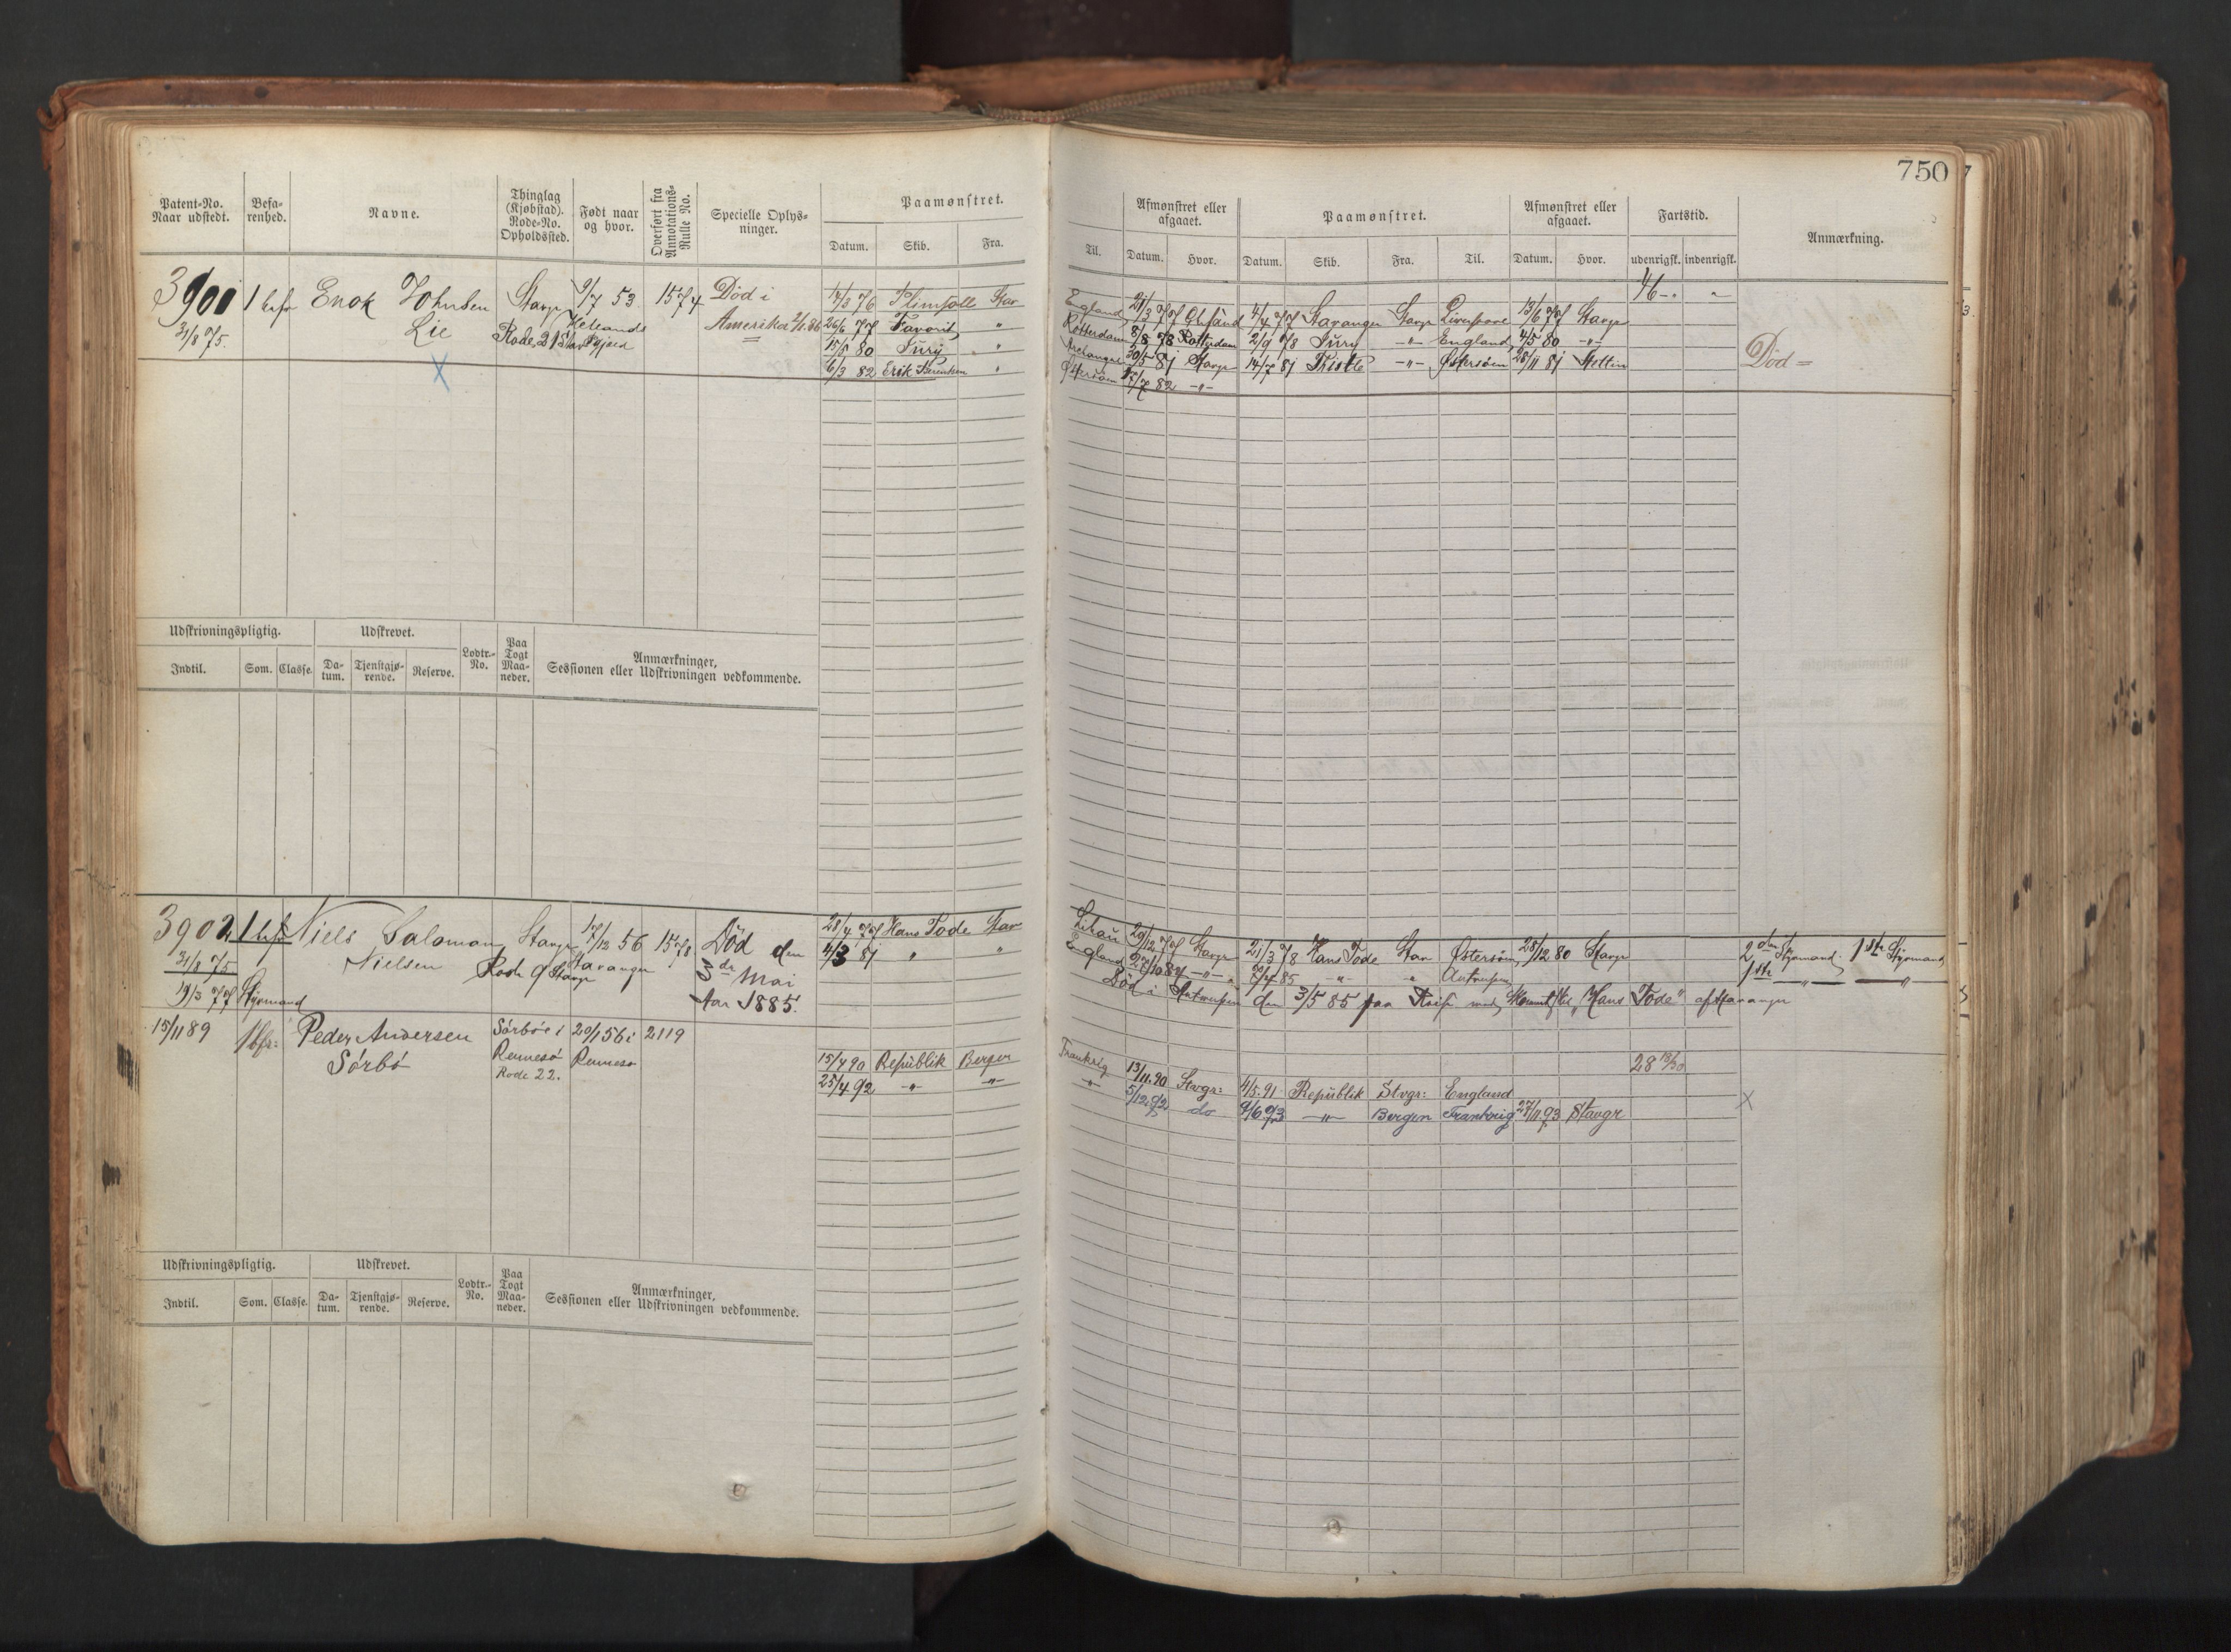 750
Patent-No. Naar udstedt.
Befa-renhed.
Navne.
Thinglag (Kjøbstad). Rode-No. Opholdssted.
Født naar og hvor.
Overført fra Annotations-Rulle No.
Specielle Oplys-ninger.
Paamønstret.
Datum. Skib. Fra.
Til.
Afmønstret eller afgaaet.
Datum. Hvor.
Paamønstret.
Datum. Skib. Fra. Til.
Afmønstret eller afgaaet.
Datum. Hvor.
Fartstid.
udenrigsk. indenrigsk.
Anmærkning.
3901 Enok Johnsen Stavgr 9/7 53 1574 Død i
31/8 75. Lie Rode 21 Amerika 2/1.86
14/3 76 Plimsoll Stav England 21/3 77 4/4 77 Stavanger Stavgr Liverpool 13/6 77 Stavgr 46
26/6 77 Favorit " Rotterdam 8/8 78 Rotterdam 2/9 78 Fury -"- England 4/5 80 -"-
15/5 80 Fury " Archangel 30/5 81 Stavgr 14/7 81 Thistle -"- Østersøen 28/11 81 Stettin
6/3 82 Erik Berentsen " Østersøen 17/7 82 -"-
Død =
Udskrivningspligtig. Udskrevet. Lodtr.-No. Paa Togt Maa-neder. Anmærkninger, Sessionen eller Udskrivningen vedkommende.
Indtil. Som. Classe. Da-tum. Tjenstgjø-rende. Reserve.
3902 Niels Salomon Stavgr 17/12 56 1578 Død den
31/8 75 Nielsen Rode 9 Stavgr Stavanger 3die Mai
19/3 77 Styrmand Aar 1885.
28/4 77 Hans Tode Stav Libau 29/12 77 Stavgr 21/3 78 Hans Tode Stav Østersøen 28/12 80 Stavgr 2den Styrmand 1ste Styrmand
4/3 81 " " England 27/10 84 -"- 7/4 85 -"- " Antwerpen 1ste -"- -"-
Død i Antwerpen den 3/5 85 paa Reise med "Hans Tode" af Stavanger
15/11 89 Peder Andersen Sørbøe i 20/1 56 i 2119
Sørbø Rennesø Rennesø
Rode 22.
15/4 90 Republik Bergen Frankrig 13/11.90 Stvgr: 4/5.91 Republik Stvgr: England 28 18/30
25/4 92 -"- -"- -"- 5/12.92 do 9/6 93 -"- Bergen Frankrig 27/11 93 Stavgr
Udskrivningspligtig. Udskrevet. Lodtr.-No. Paa Togt Maa-neder. Anmærkninger, Sessionen eller Udskrivningen vedkommende.
Indtil. Som. Classe. Da-tum. Tjenstgjø-rende. Reserve.